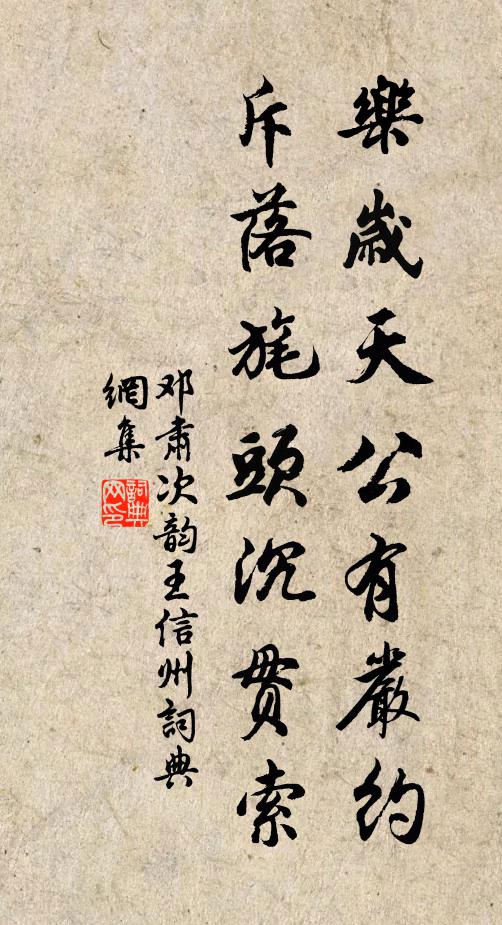 樂歲天公有嚴約
斥落旄頭沉貫索
邓肅次韵王信州詞典
網集
詞典網印